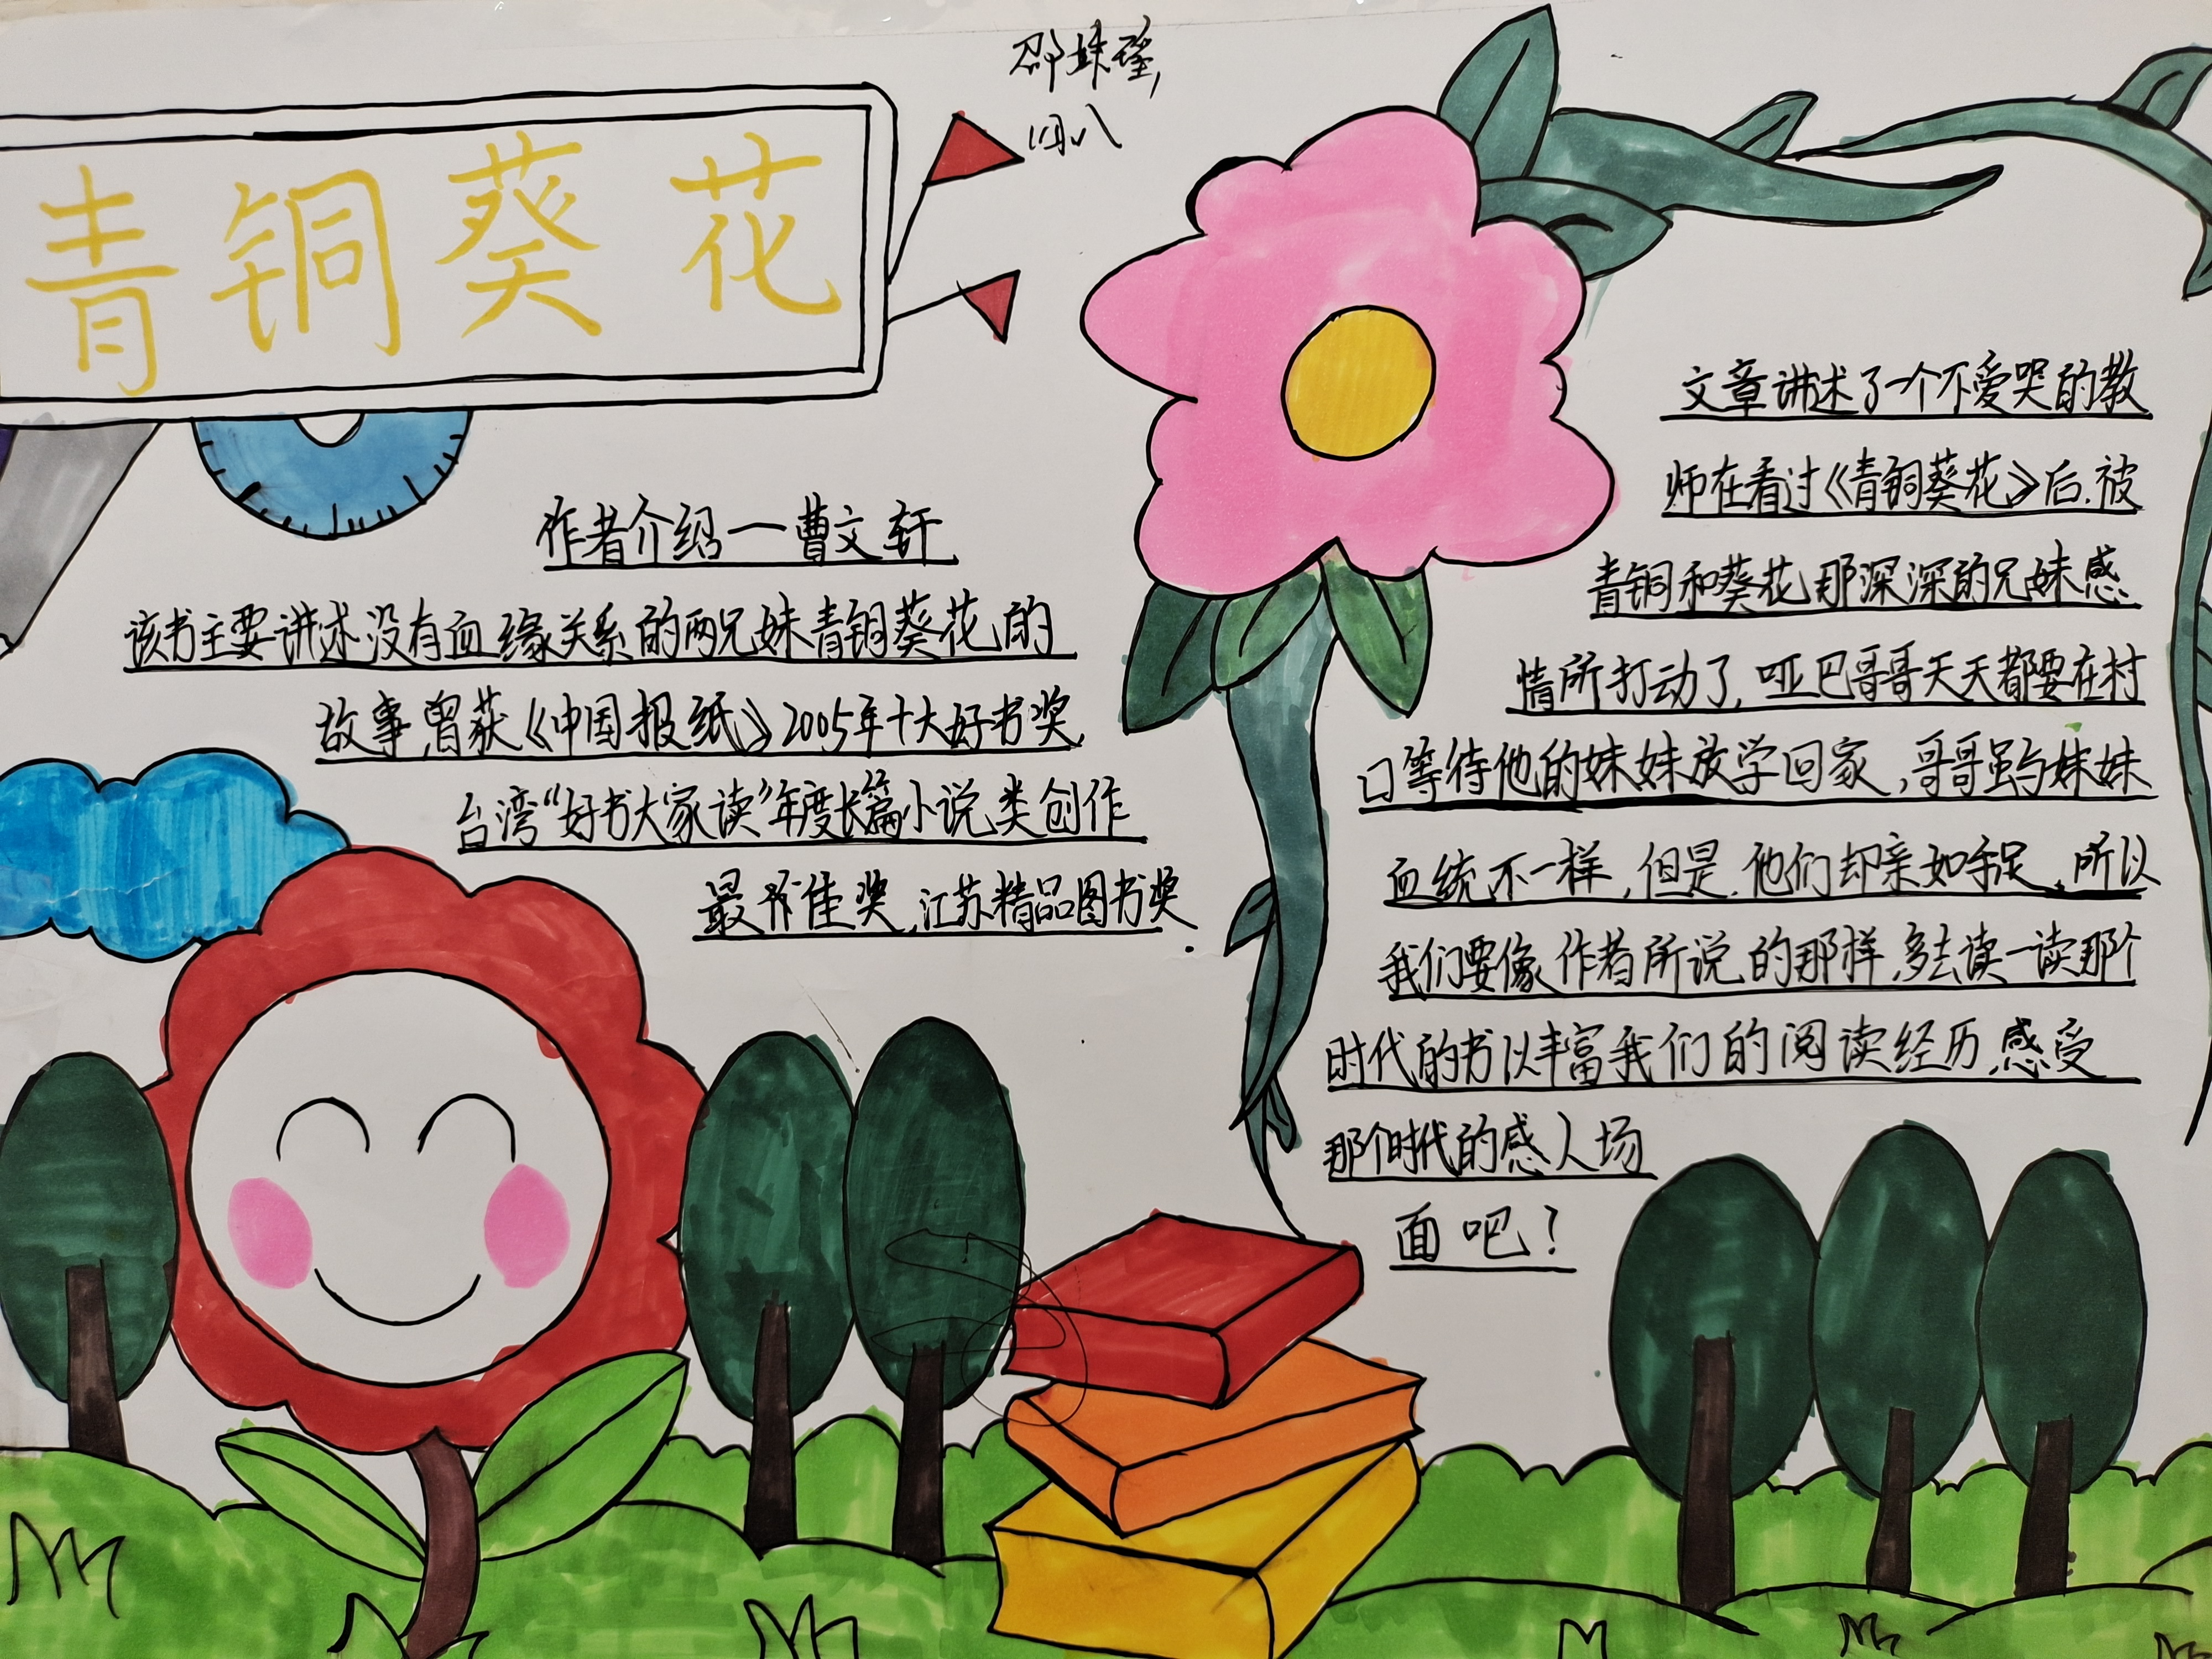 青铜葵花
邵姝瑶,
四八
作者介绍一曹文轩
该书主要讲述没有血缘关系的两兄妹青铜葵花的
故事,曾获《中国报纸》2005年十大好书奖,
台湾“好书大家读”年度长篇小说类创作
最佳奖,江苏精品图书奖.
文章讲述了一个不爱哭的教
师在看过《青铜葵花》后,被
青铜和葵花那深深的兄妹感
情所打动了,哑巴哥哥天天都要在村
口等待他的妹妹放学回家,哥哥虽与妹妹
血统不一样,但是,他们却亲如手足,所以
我们要像作者所说的那样,多去读一读那个
时代的书以丰富我们的阅读经历,感受
那个时代的感人场
面吧?